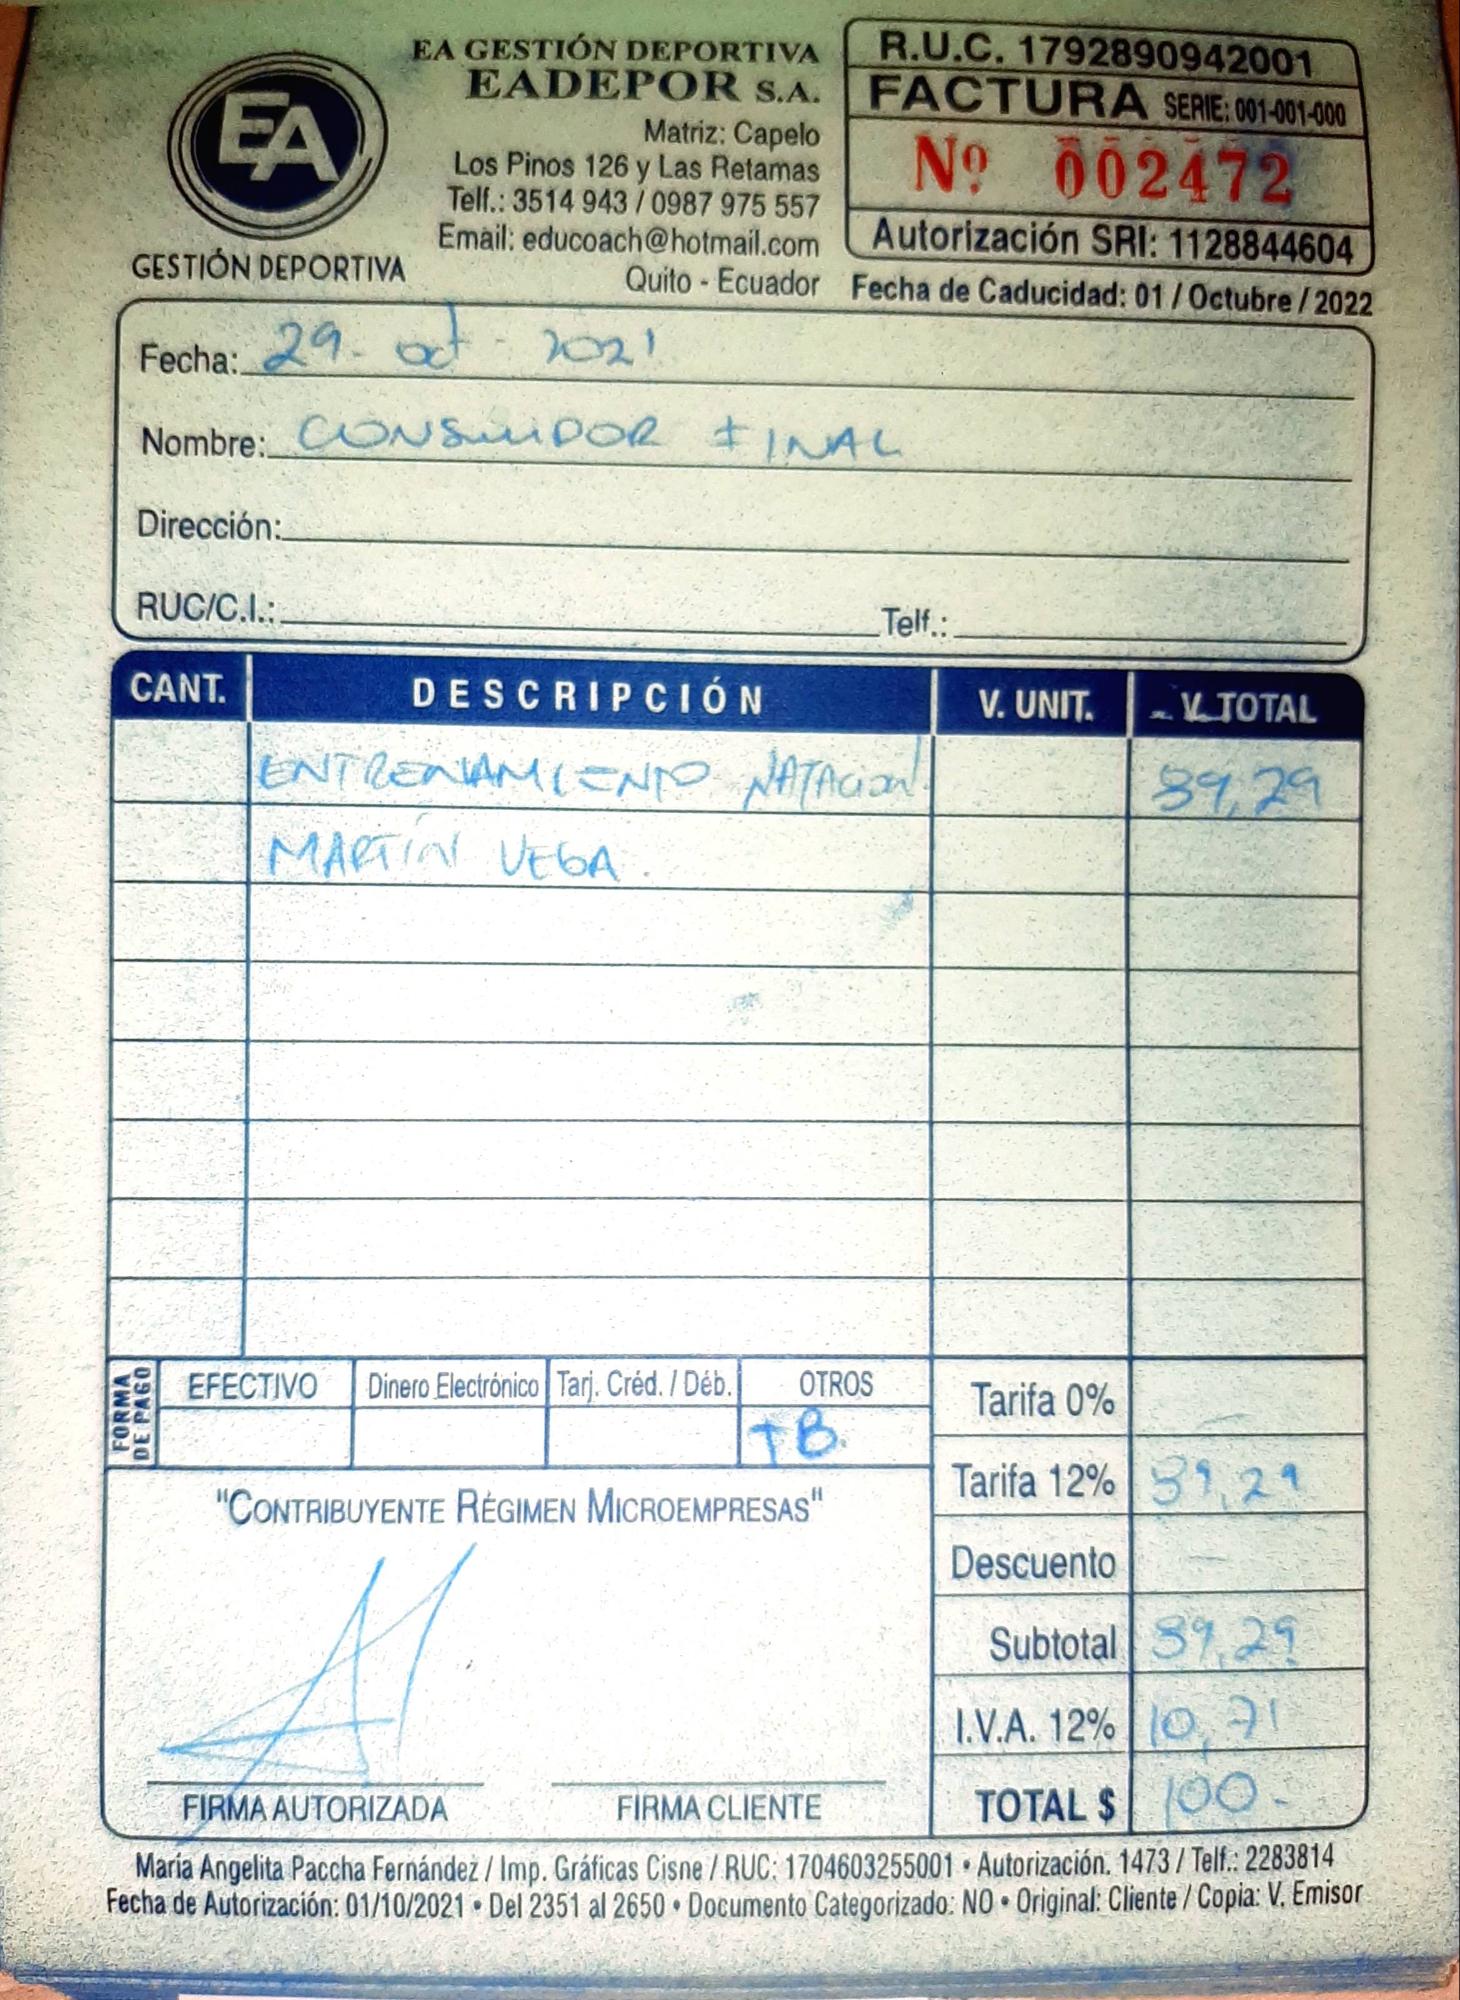 EA
GESTIÓN DEPORTIVA
EA GESTIÓN DEPORTIVA
EADEPOR S.A.
Matriz: Capelo
Los Pinos 126 y Las Retamas
Telf.: 3514 943 / 0987 975 557
Email: educoach@hotmail.com
Quito - Ecuador
R.U.C. 1792890942001
FACTURA SERIE: 001-001-000
Nº 002472
Autorización SRI: 1128844604
Fecha de Caducidad: 01 / Octubre / 2022
Fecha: 29- oct - 2021
Nombre: CONSUMIDOR FINAL
Dirección:
RUC/C.I.: Telf.:
CANT. DESCRIPCIÓN V. UNIT. V. TOTAL
ENTRENAMIENTO NATACION 89,29
MARTÍN VEGA.
FORMA DE PAGO
EFECTIVO Dinero Electrónico Tarj. Créd. / Déb. OTROS
TB.
Tarifa 0% -
Tarifa 12% 89,29
Descuento -
Subtotal 89,29
I.V.A. 12% 10,71
TOTAL $ 100.-
"CONTRIBUYENTE RÉGIMEN MICROEMPRESAS"
FIRMA AUTORIZADA FIRMA CLIENTE
María Angelita Paccha Fernández / Imp. Gráficas Cisne / RUC: 1704603255001 • Autorización. 1473 / Telf.: 2283814
Fecha de Autorización: 01/10/2021 • Del 2351 al 2650 • Documento Categorizado: NO • Original: Cliente / Copia: V. Emisor